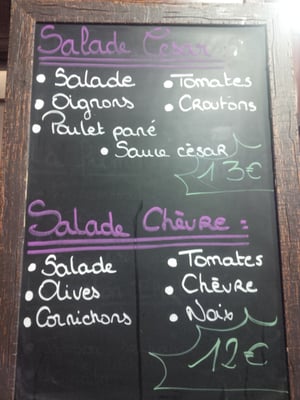 Salade César :
• Salade • Tomates
• Oignons • Croutons
• Poulet pané
• Sauce césar
13€
Salade Chèvre :
• Salade • Tomates
• Olives • Chèvre
• Cornichons • Noix
12€